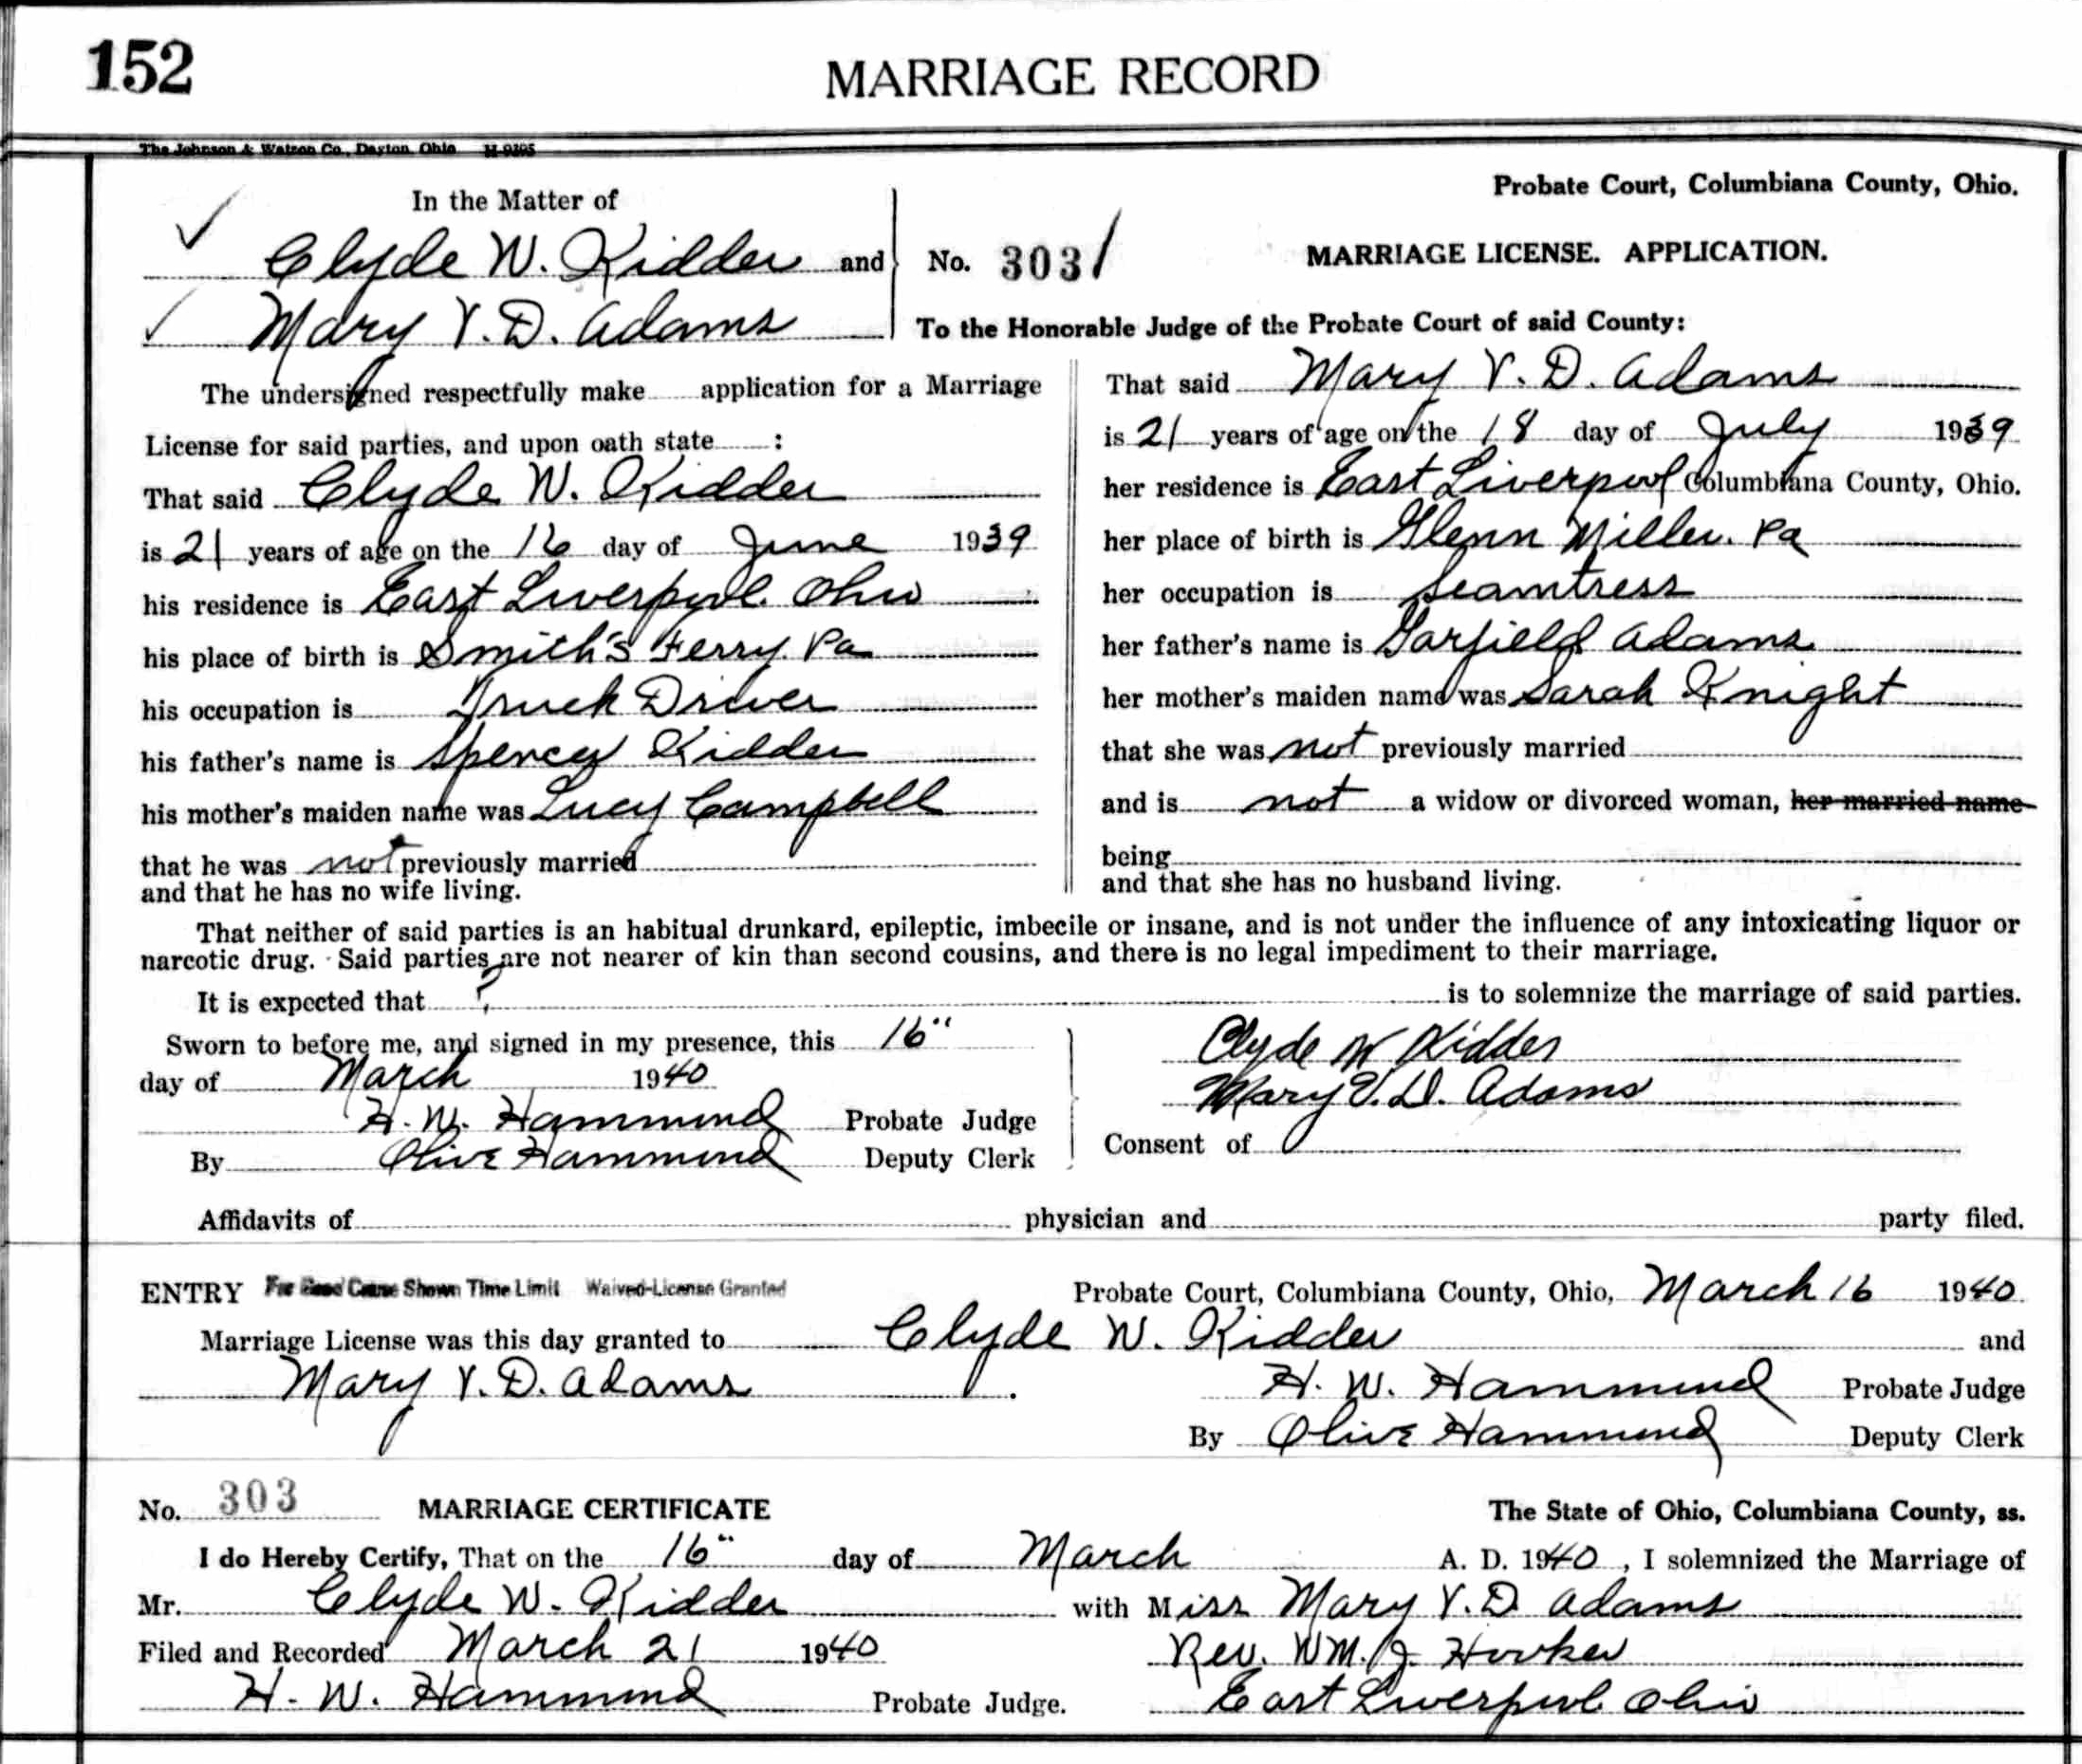 152
MARRIAGE RECORD
The Johnson & Watson Co., Dayton, Ohio M-9395
In the Matter of
Clyde W. Kidder and
Mary V. D. Adams
No. 303
Probate Court, Columbiana County, Ohio.
MARRIAGE LICENSE. APPLICATION.
To the Honorable Judge of the Probate Court of said County:
The undersigned respectfully make application for a Marriage
License for said parties, and upon oath state :
That said Clyde W. Kidder
is 21 years of age on the 16 day of June 1939
his residence is East Liverpool Ohio
his place of birth is Smith's Ferry. Pa
his occupation is Truck Driver
his father's name is Spencer Kidder
his mother's maiden name was Lucy Campbell
that he was not previously married
and that he has no wife living.
That said Mary V. D. Adams
is 21 years of age on the 18 day of July 1939
her residence is East Liverpool Columbiana County, Ohio.
her place of birth is Glenn Miller. Pa
her occupation is Seamtress
her father's name is Garfield Adams
her mother's maiden name was Sarah Knight
that she was not previously married
and is not a widow or divorced woman, her married name
being
and that she has no husband living.
That neither of said parties is an habitual drunkard, epileptic, imbecile or insane, and is not under the influence of any intoxicating liquor or
narcotic drug. Said parties are not nearer of kin than second cousins, and there is no legal impediment to their marriage.
It is expected that ? is to solemnize the marriage of said parties.
Sworn to before me, and signed in my presence, this 16"
day of March 1940
H. W. Hammond Probate Judge
By Olive Hammond Deputy Clerk
Clyde W Kidder
Mary V. D. Adams
Consent of
Affidavits of physician and party filed.
ENTRY For Good Cause Shown Time Limit Waived-License Granted
Probate Court, Columbiana County, Ohio, March 16 1940
Marriage License was this day granted to Clyde W. Kidder and
Mary V. D. Adams .
H. W. Hammond Probate Judge
By Olive Hammond Deputy Clerk
No. 303 MARRIAGE CERTIFICATE The State of Ohio, Columbiana County, ss.
I do Hereby Certify, That on the 16" day of March A. D. 1940 , I solemnized the Marriage of
Mr. Clyde W. Kidder with Miss Mary V. D Adams
Filed and Recorded March 21 1940 Rev. WM. J. Hooker
H. W. Hammond Probate Judge. East Liverpool Ohio